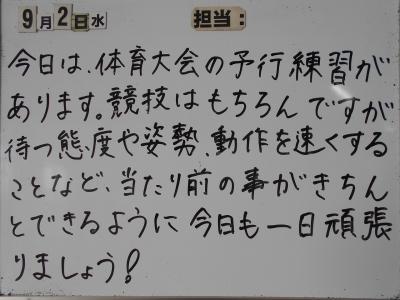 9月2日水 担当:
今日は、体育大会の予行練習が
あります。競技はもちろんですが
待つ態度や姿勢、動作を速くする
ことなど、当たり前の事がきちん
とできるように今日も一日頑張
りましょう!